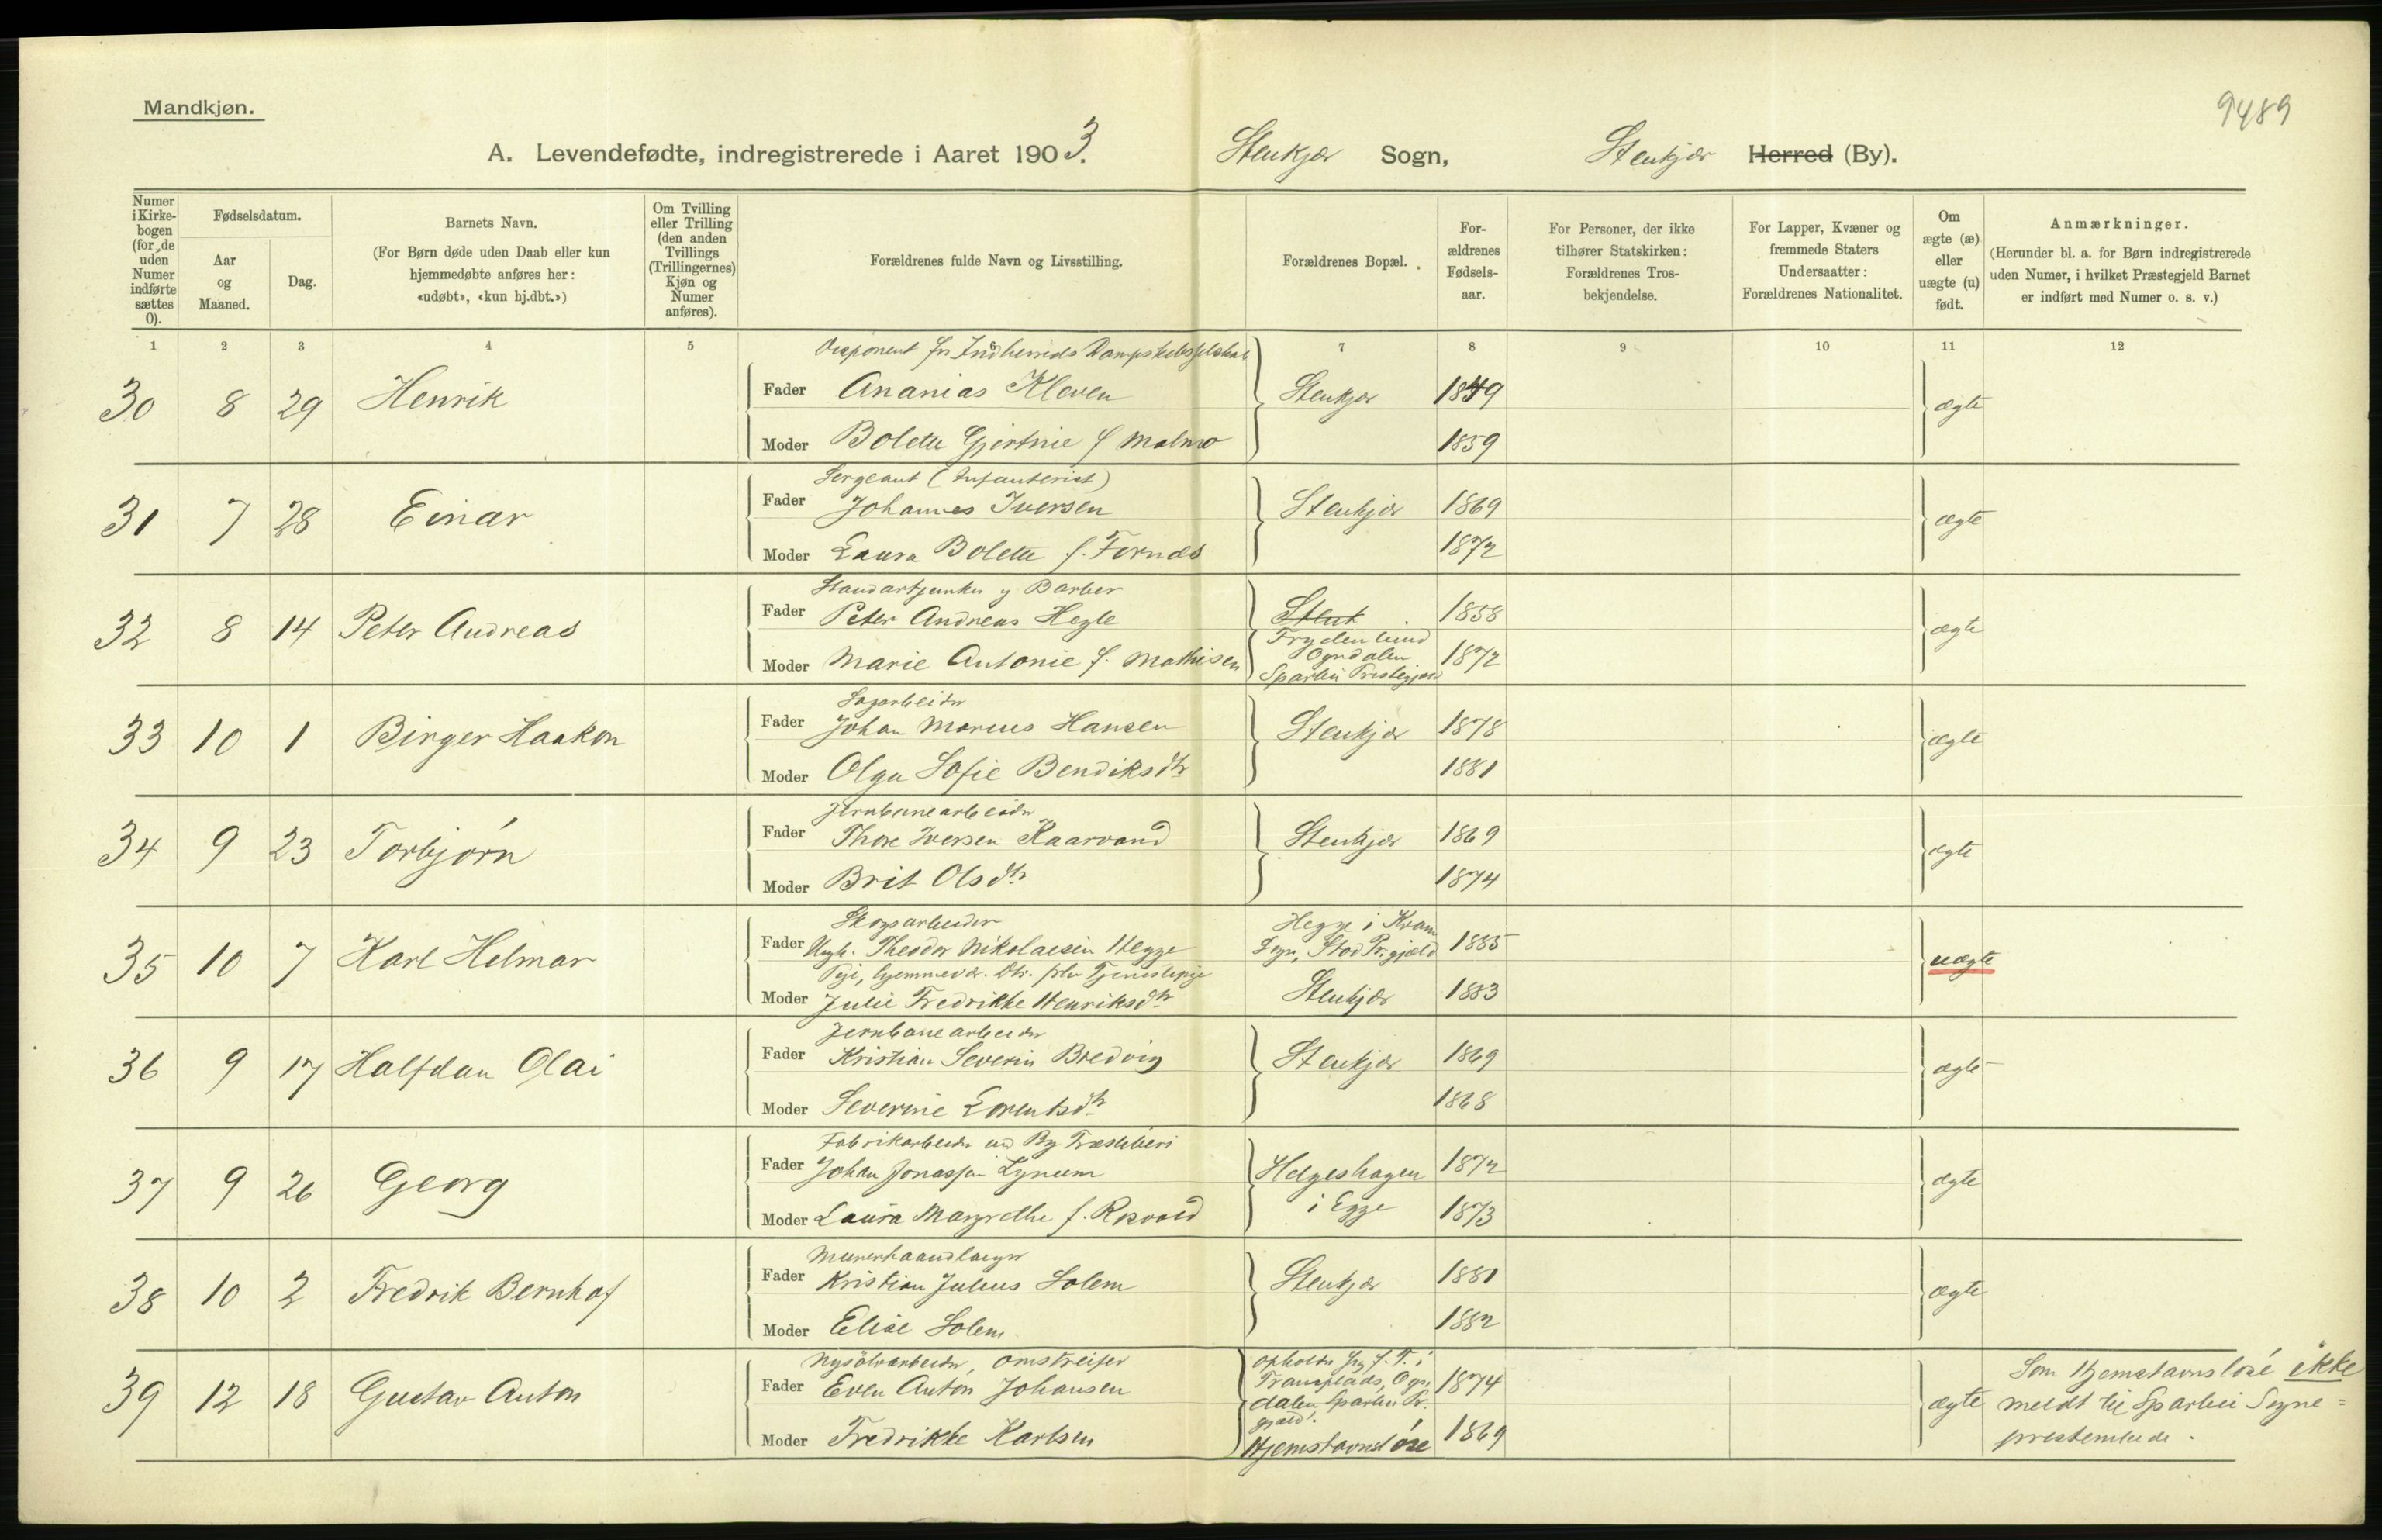 Mandkjøn.
9489
A. Levendefødte, indregistrerede i Aaret 1903. Stenkjær Sogn, Stenkjær Herred (By).
Numer i Kirkebogen (for de uden Numer indførte sættes 0).
Fødselsdatum.
Aar og Maaned.
Dag.
Barnets Navn.
(For Børn døde uden Daab eller kun hjemmedøbte anføres her: «udøbt», «kun hj.dbt.»)
Om Tvilling eller Trilling (den anden Tvillings (Trillingernes) Kjøn og Numer anføres).
Forældrenes fulde Navn og Livsstilling.
Forældrenes Bopæl.
Forældrenes Fødselsaar.
For Personer, der ikke tilhører Statskirken: Forældrenes Trosbekjendelse.
For Lapper, Kvæner og fremmede Staters Undersaatter: Forældrenes Nationalitet.
Om ægte (æ) eller uægte (u) født.
Anmærkninger.
(Herunder bl. a. for Børn indregistrerede uden Numer, i hvilket Præstegjeld Barnet er indført med Numer o. s. v.)
1 2 3 4 5 6 7 8 9 10 11 12
Disponent for Indherreds Dampskibsselskab
30 8 29 Henrik Fader Ananias Kleven Stenkjær 1849 ægte
Moder Bolette Gjertine f Malmo 1859
Sergeant (Infanterist)
31 7 28 Einar Fader Johannes Iversen Stenkjær 1869 ægte
Moder Laura Bolette f. Fornæs 1872
Standartjunker og Barber
32 8 14 Peter Andreas Fader Peter Andreas Hegle Stenk 1858 ægte
Frydenlund
Ogndalen
Moder Marie Antonie f. Mathisen Sparbu Prestegjæld 1872
Sagarbeider
33 10 1 Birger Haakon Fader Johan Marius Hansen Stenkjær 1878 ægte
Moder Olga Sofie Bendiksdtr 1881
Jernbanearbeider
34 9 23 Torbjørn Fader Thore Iversen Kaarvand Stenkjær 1869 ægte
Moder Brit Olsdtr 1874
Skogsarbeider
35 10 7 Karl Helmar Fader Ungk. Theodor Nikolaisen Hegge Hegge i Kvam Sogn, Stod Pr.gjæld 1885 uægte
Pige, hjemmevær. Dtr. før Tjenestepige
Moder Julie Fredrikke Henriksdtr Stenkjær 1883
Jernbanearbeider
36 9 17 Halfdan Olai Fader Kristian Severin Bredvig Stenkjær 1869 ægte
Moder Severine Lorentsdtr 1868
Fabrikarbeider ved By Træsliberi
37 9 26 Georg Fader Johan Jonassen Lynum Helgeshagen 1872 ægte
Moder Laura Margrethe f. Rosvold i Egge 1873
Murerhaandlanger
38 10 2 Fredrik Bernhof Fader Kristian Julius Solem Stenkjær 1881 ægte
Moder Elise Solem 1882
Nysølvarbeider, omstreifer
39 12 18 Gustav Anton Fader Even Anton Johansen opholder sig f. T. i Tranaplads, Ogndalen Sparbu Pr.gjæld. 1874 ægte
Moder Fredrikke Karlsen Hjemstavnsløse 1869
Som Hjemstavnsløse ikke
meldt til Sparbu Sogne=
prestembede.